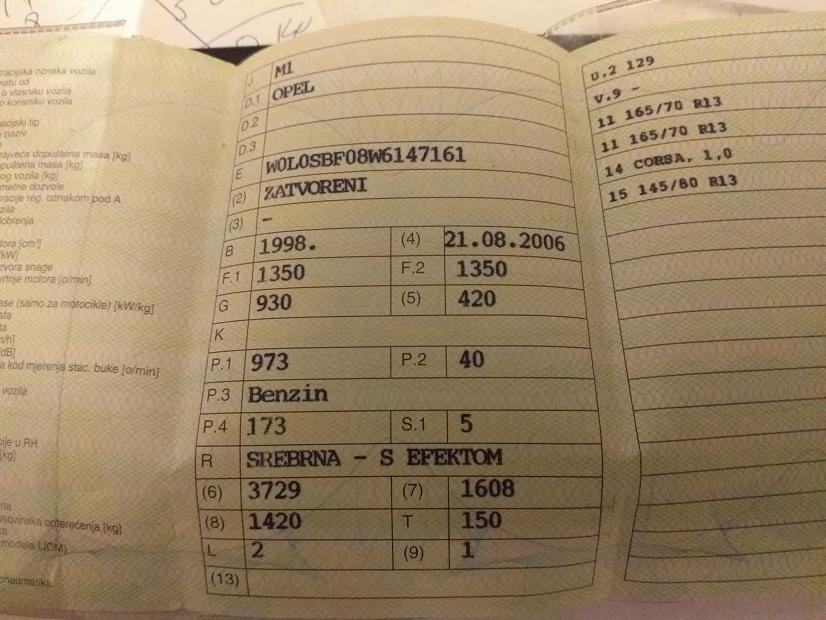 racijska oznaka vozila
o vlasniku vozila
o korisniku vozila
naziv
najveća dopuštena masa [kg]
masa [kg]
vozila [kg]
dozvole
reg. oznakom pod A
[cm³]
motora [o/min]
(samo za motocikle) [kW/kg]
kod mjerenja stac. buke [o/min]
vozila
u RH
[kg]
osovinska opterećenja [kg]
modela (JOM)
pneumatika
J M1
D.1 OPEL
D.2
D.3
E W0L0SBF08W6147161
(2) ZATVORENI
(3) –
B 1998. (4) 21.08.2006
F.1 1350 F.2 1350
G 930 (5) 420
K
P.1 973 P.2 40
P.3 Benzin
P.4 173 S.1 5
R SREBRNA - S EFEKTOM
(6) 3729 (7) 1608
(8) 1420 T 150
L 2 (9) 1
(13)
U.2 129
V.9 -
11 165/70 R13
11 165/70 R13
14 CORSA, 1,0
15 145/80 R13